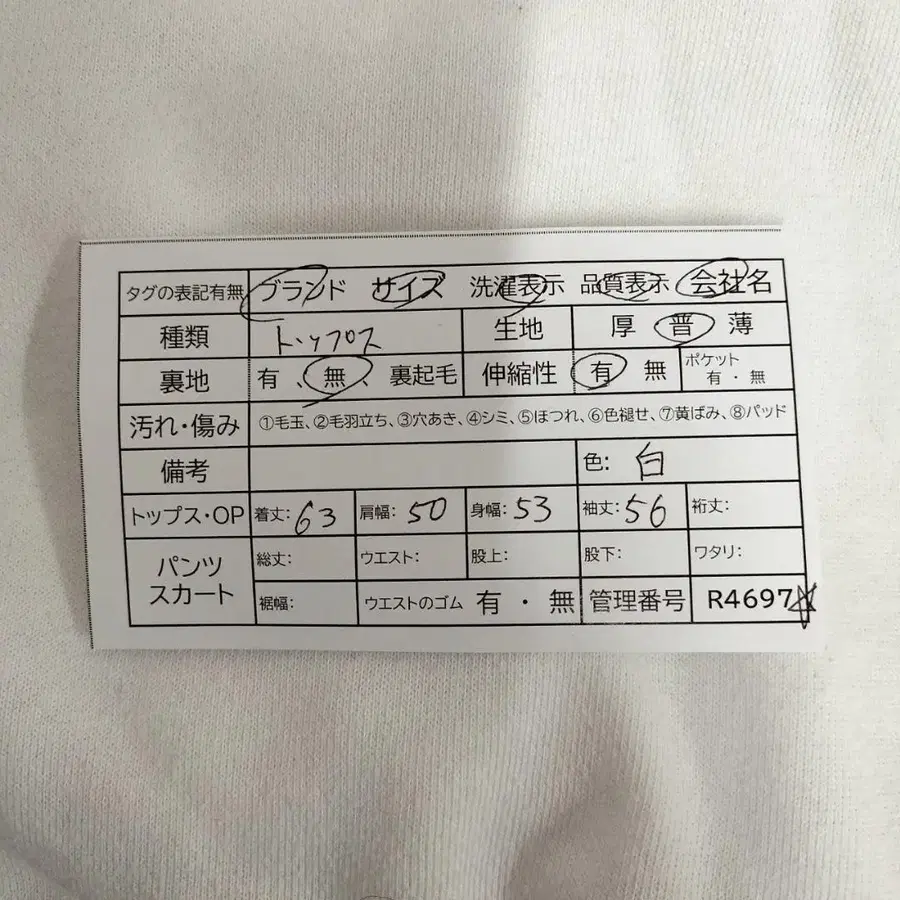 タグの表記有無 ブランド サイズ 洗濯表示 品質表示 会社名
種類 トップス 生地 厚 普 薄
裏地 有、無、裏起毛 伸縮性 有 無 ポケット 有・無
汚れ・傷み ①毛玉、②毛羽立ち、③穴あき、④シミ、⑤ほつれ、⑥色褪せ、⑦黄ばみ、⑧パッド
備考 色: 白
トップス・OP 着丈: 63 肩幅: 50 身幅: 53 袖丈: 56 裄丈:
パンツ スカート 総丈: ウエスト: 股上: 股下: ワタリ:
裾幅: ウエストのゴム 有・無 管理番号 R4697☆